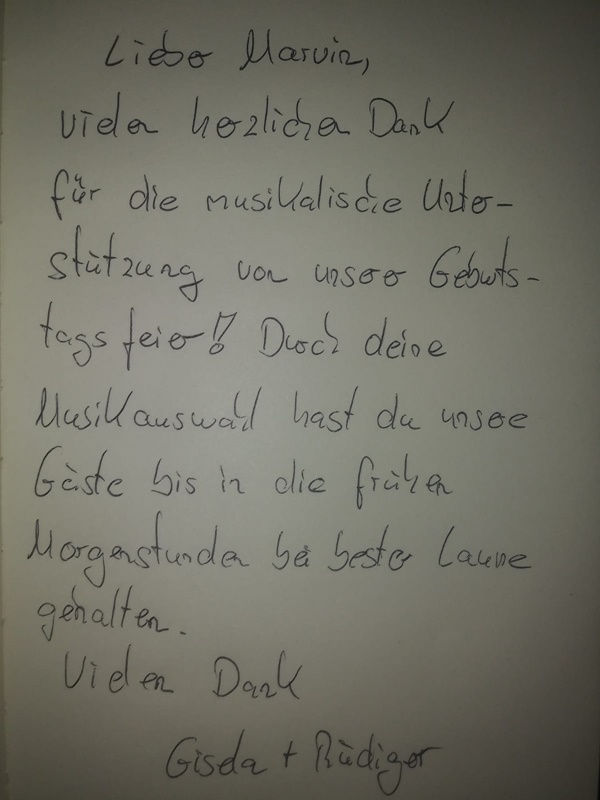 Lieber Marvin,
vielen herzlichen Dank
für die musikalische Unter-
stützung von unserer Geburts-
tagsfeier!! Durch deine
Musikauswahl hast du unsere
Gäste bis in die frühen
Morgenstunden bei bester Laune
gehalten.
Vielen Dank
Gisela + Rüdiger